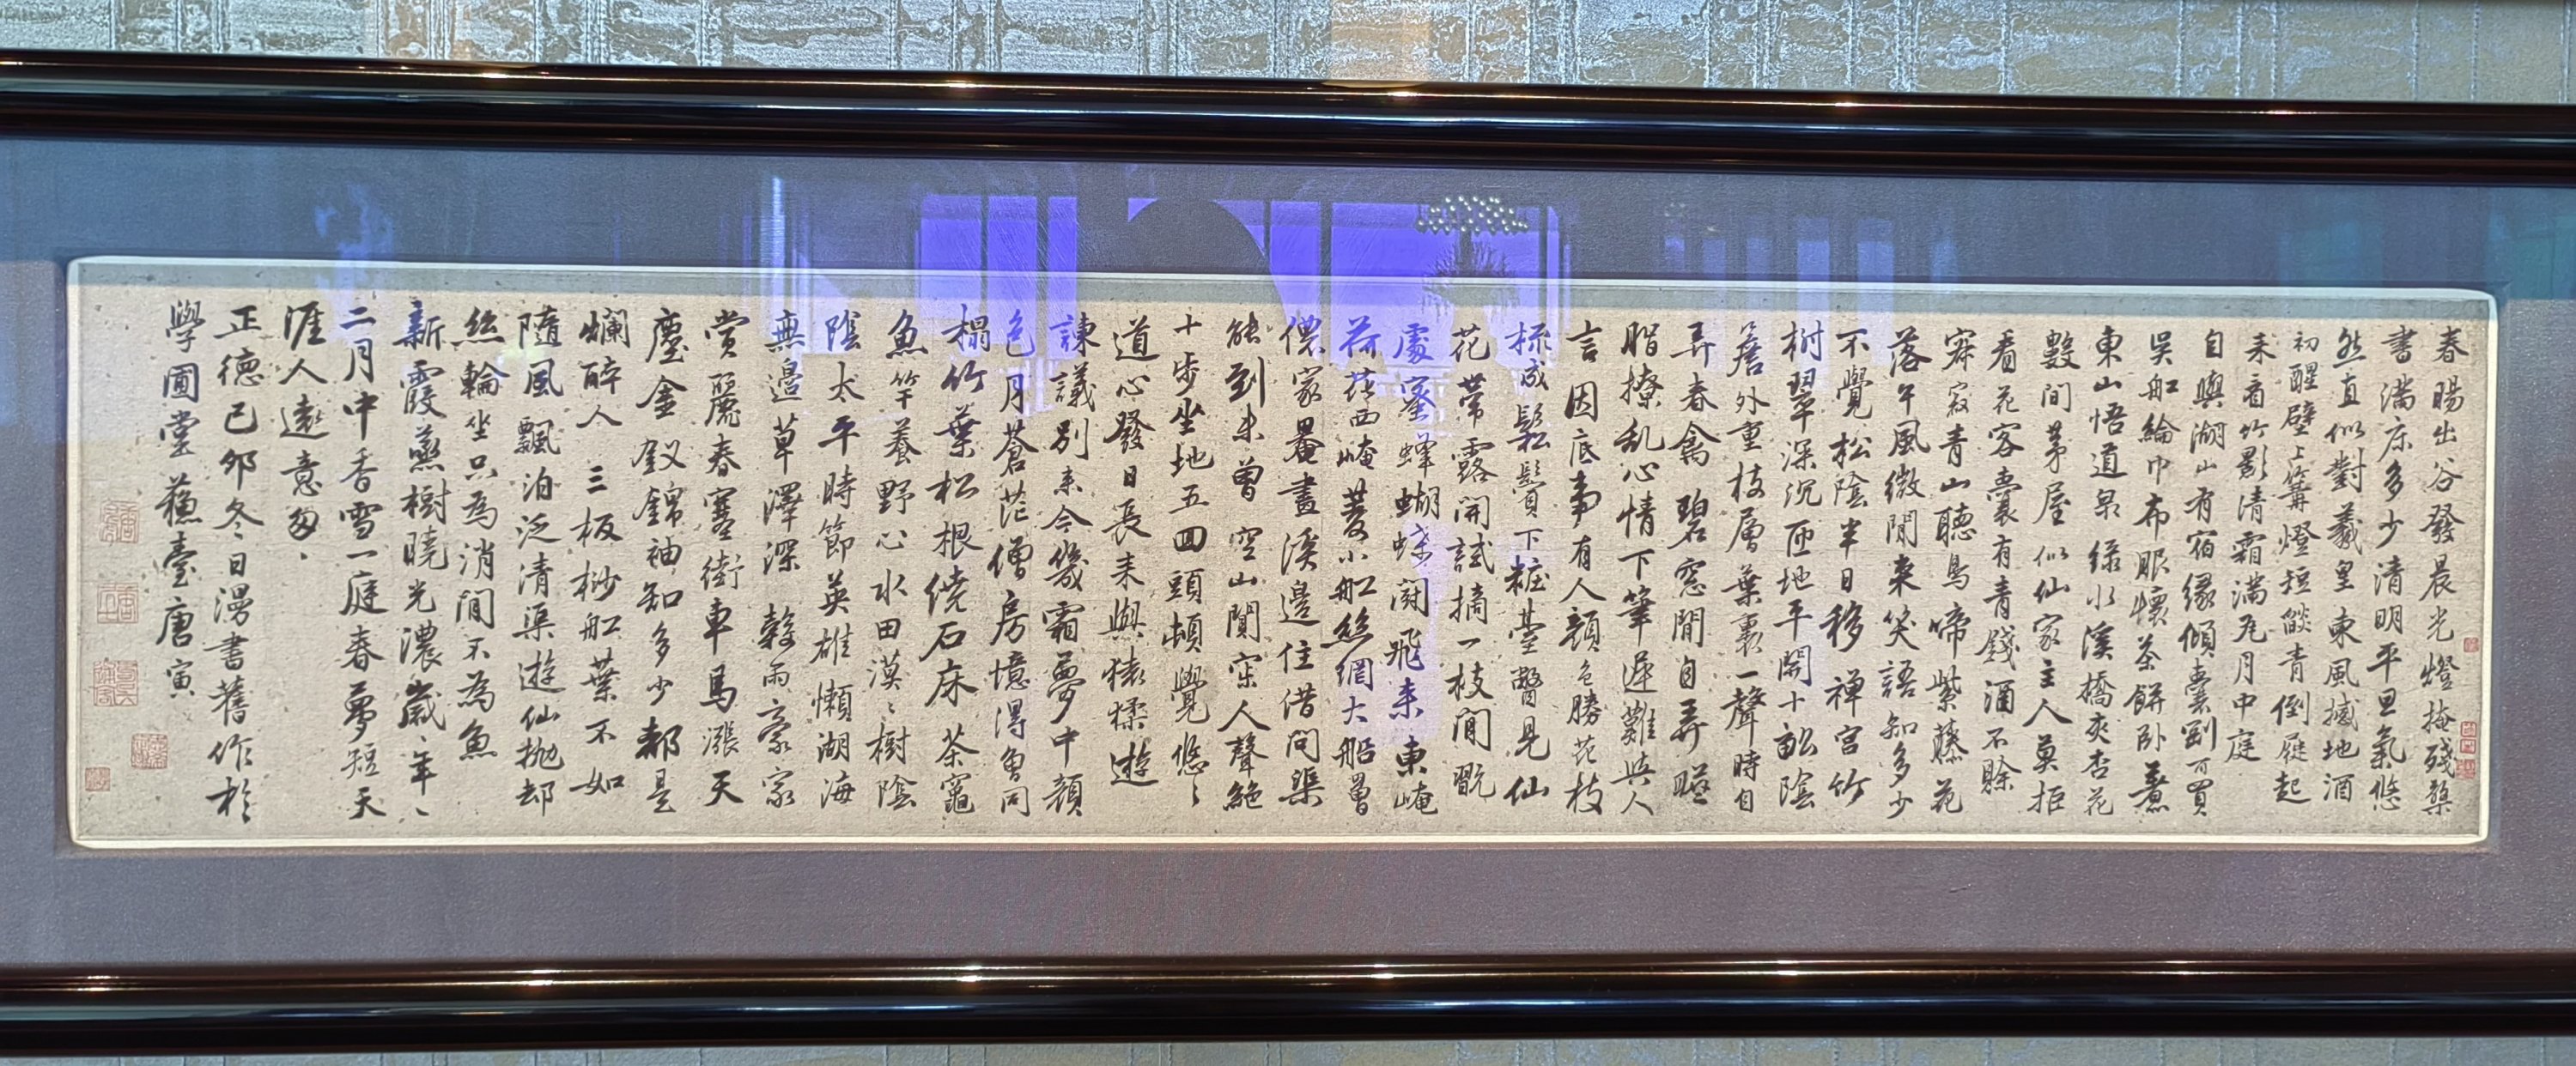 春暘出谷發晨光燈掩殘檠
書滿床多少清明平旦氣悠
然直似對羲皇東風撼地酒
初醒壁上篝燈短燄青倒屣起
來看竹影清霜滿瓦月中庭
自與湖山有宿緣傾囊剛可買
吳舩綸巾布服懷茶餅卧煮
東山悟道泉綠水溪橋夾杏花
數間茅屋似仙家主人莫拒
看花客囊有青錢酒不賒
寂寂青山聽鳥啼紫藤花
落午風微閒來笑語知多少
不覺松陰半日移禅宮竹
樹翠深沉匝地平開十畝陰
簷外重枝層葉裏一聲時自
弄春禽碧窓閒自弄
脂撩亂心情下筆遲難與人
言因底事有人顏色勝花枝
梳成鬆鬢下粧臺瞥見仙
花帶露開試摘一枝閒翫
處蜜蜂蝴蝶鬭飛來東崦
荷花西崦菱小舩絲網大船罾
儂家罨畫溪邊住借問渠
能到未曾空山閴寂人聲絶
十步坐地五回頭頓覺悠〻
道心發日長來與猿猱遊
諫議別來今幾霜夢中顏
色月蒼茫僧房憶得曾同
榻竹葉松根繞石床茶竈
魚竿養野心水田漠〻樹陰
陰太平時節英雄懶湖海
無邉草澤深穀雨豪家
賞麗春塞街車馬漲天
塵金釵錦袖知多少都是
爛醉人三板桫舩葉不如
隨風飄泊泛清渠遊仙抛却
絲輪坐只為消閒不為魚
新霞蒸樹曉光濃歲〻年〻
二月中香雪一庭春夢短天
涯人遠意匆〻
正德己夘冬日漫書舊作於
學圃堂蘓臺唐寅